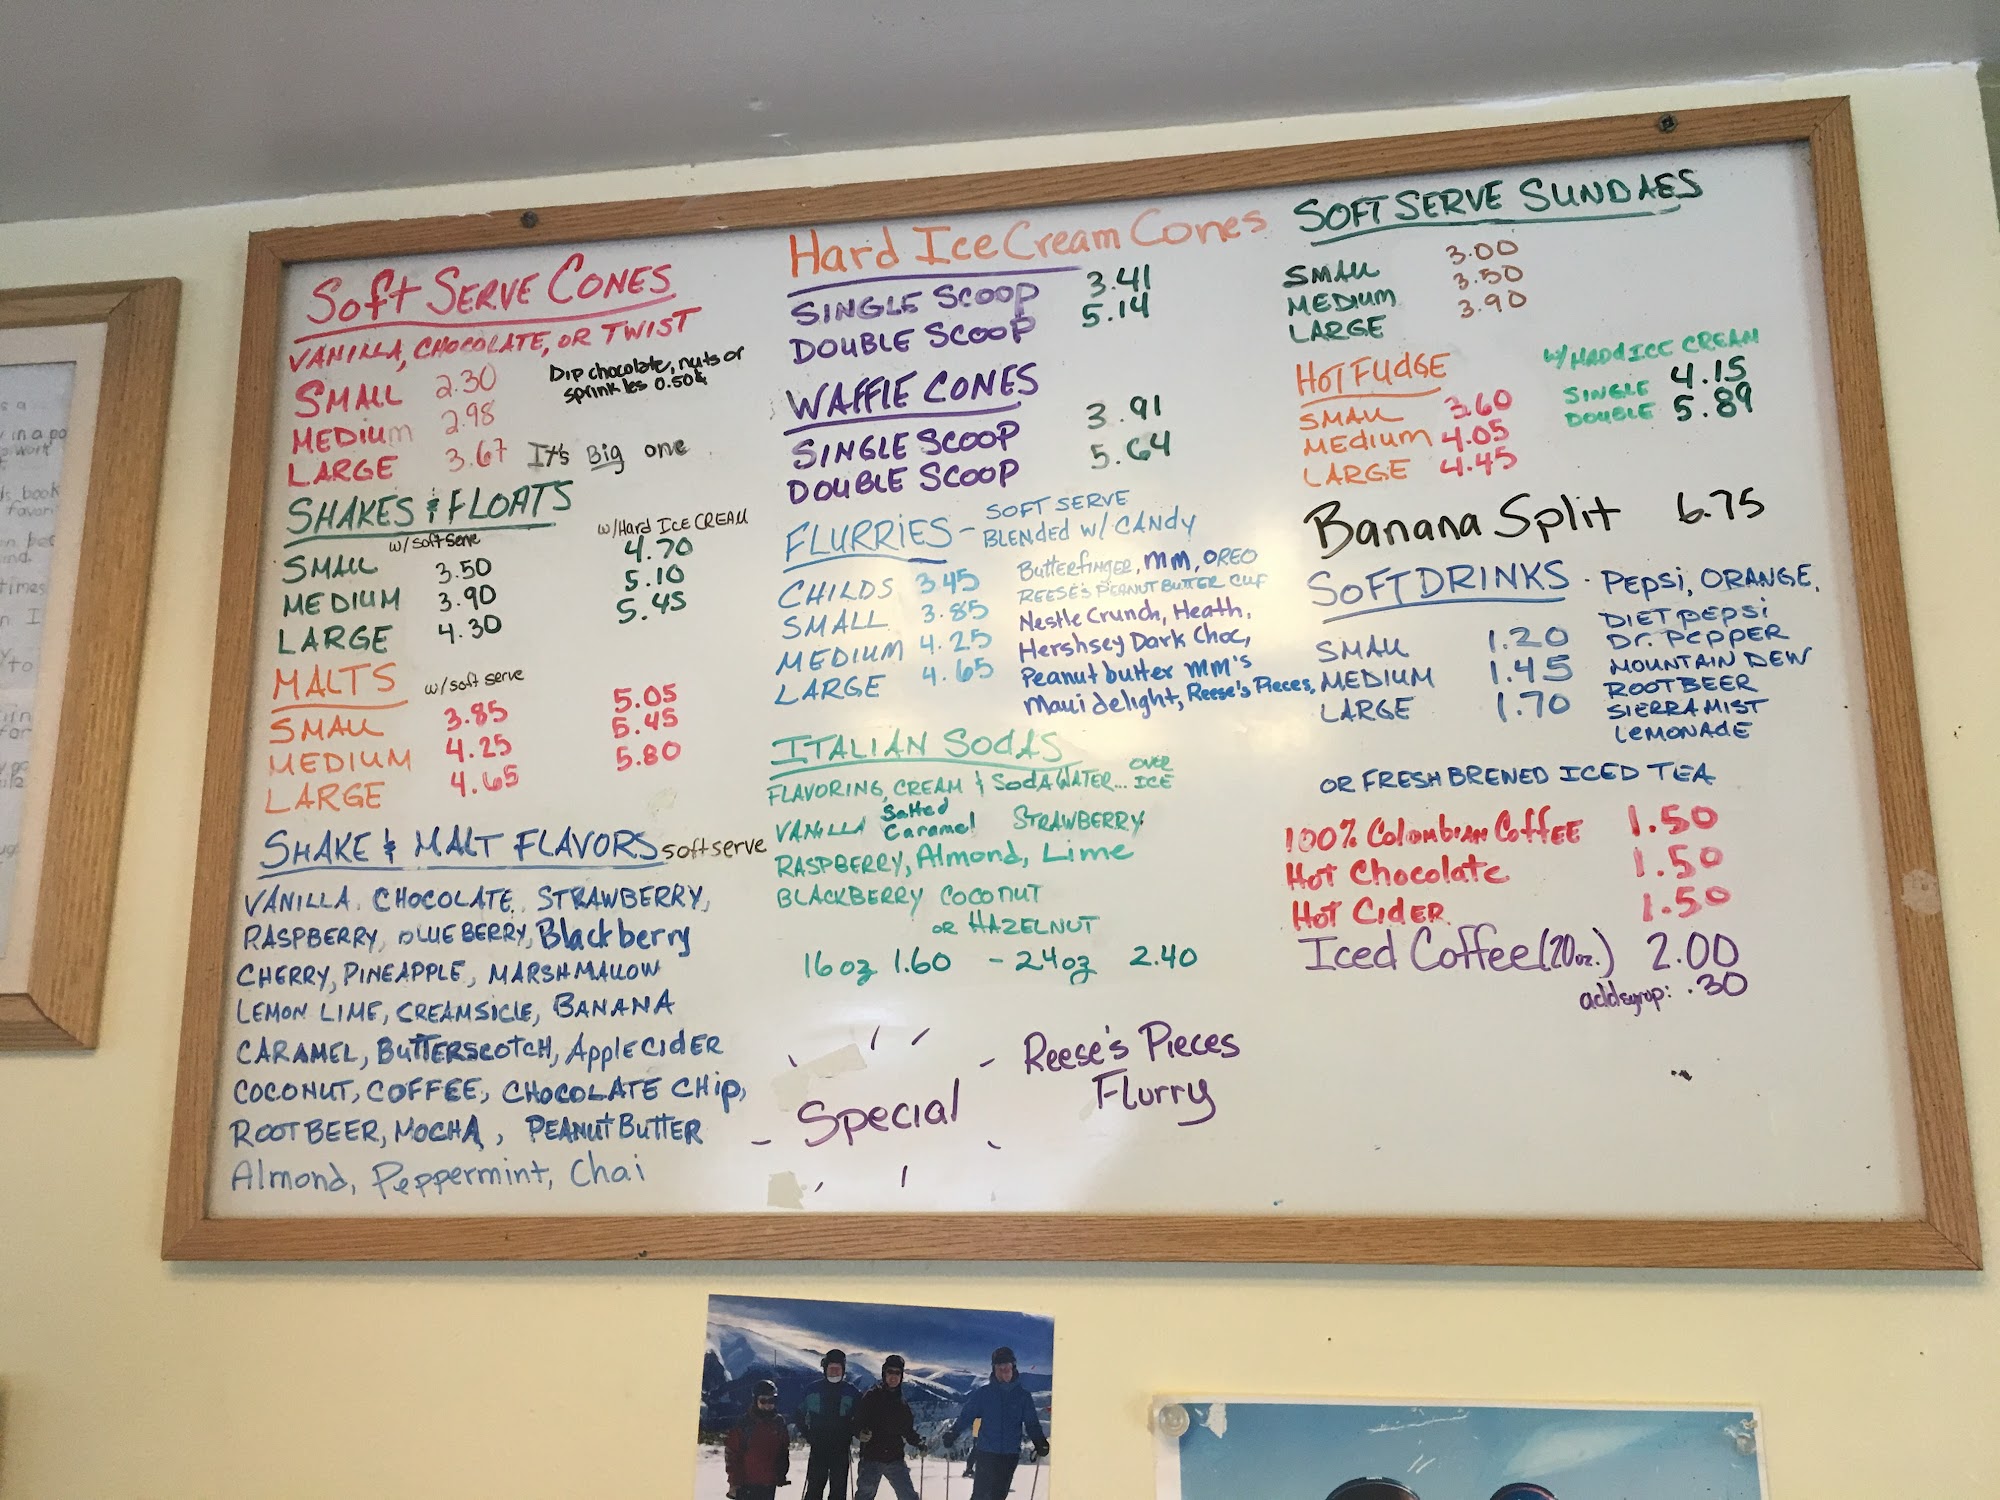 Soft Serve Cones
Vanilla, Chocolate, or Twist
Small 2.30
Medium 2.98
Large 3.67 It's Big one
Dip chocolate, nuts or
sprinkles 0.50¢
Shakes & Floats
w/soft serve w/Hard Ice Cream
Small 3.50 4.70
Medium 3.90 5.10
Large 4.30 5.45
Malts w/soft serve
Small 3.85 5.05
Medium 4.25 5.45
Large 4.65 5.80
Shake & Malt Flavors softserve
Vanilla, Chocolate, Strawberry,
Raspberry, Blueberry, Blackberry
Cherry, Pineapple, Marshmallow
Lemon Lime, Creamsicle, Banana
Caramel, Butterscotch, Apple Cider
Coconut, Coffee, Chocolate Chip,
Rootbeer, Mocha, Peanut Butter
Almond, Peppermint, Chai
Hard Ice Cream Cones
Single Scoop 3.41
Double Scoop 5.14
Waffle Cones
Single Scoop 3.91
Double Scoop 5.64
Flurries - Soft Serve
Blended w/ Candy
Childs 3.45
Small 3.85
Medium 4.25
Large 4.65
Butterfinger, MM, Oreo
Reese's Peanut Butter Cup
Nestle Crunch, Heath,
Hershsey Dark Choc,
Peanut butter MM's
Maui delight, Reese's Pieces,
Italian Sodas
Flavoring, Cream & Soda Water... over ice
Vanilla Salted Caramel Strawberry
Raspberry, Almond, Lime
Blackberry Coconut
or Hazelnut
16oz 1.60 - 24oz 2.40
Special
Reese's Pieces
Flurry
Soft Serve Sundaes
Small 3.00
Medium 3.50
Large 3.90
Hot Fudge
Small 3.60
Medium 4.05
Large 4.45
w/Hadd Ice Cream
Single 4.15
Double 5.89
Banana Split 6.75
Soft Drinks - Pepsi, Orange,
Diet Pepsi
Dr. Pepper
Mountain Dew
Rootbeer
Sierra Mist
Lemonade
Small 1.20
Medium 1.45
Large 1.70
or Fresh Brewed Iced Tea
100% Colombian Coffee 1.50
Hot Chocolate 1.50
Hot Cider 1.50
Iced Coffee (20oz.) 2.00
add syrup: .30